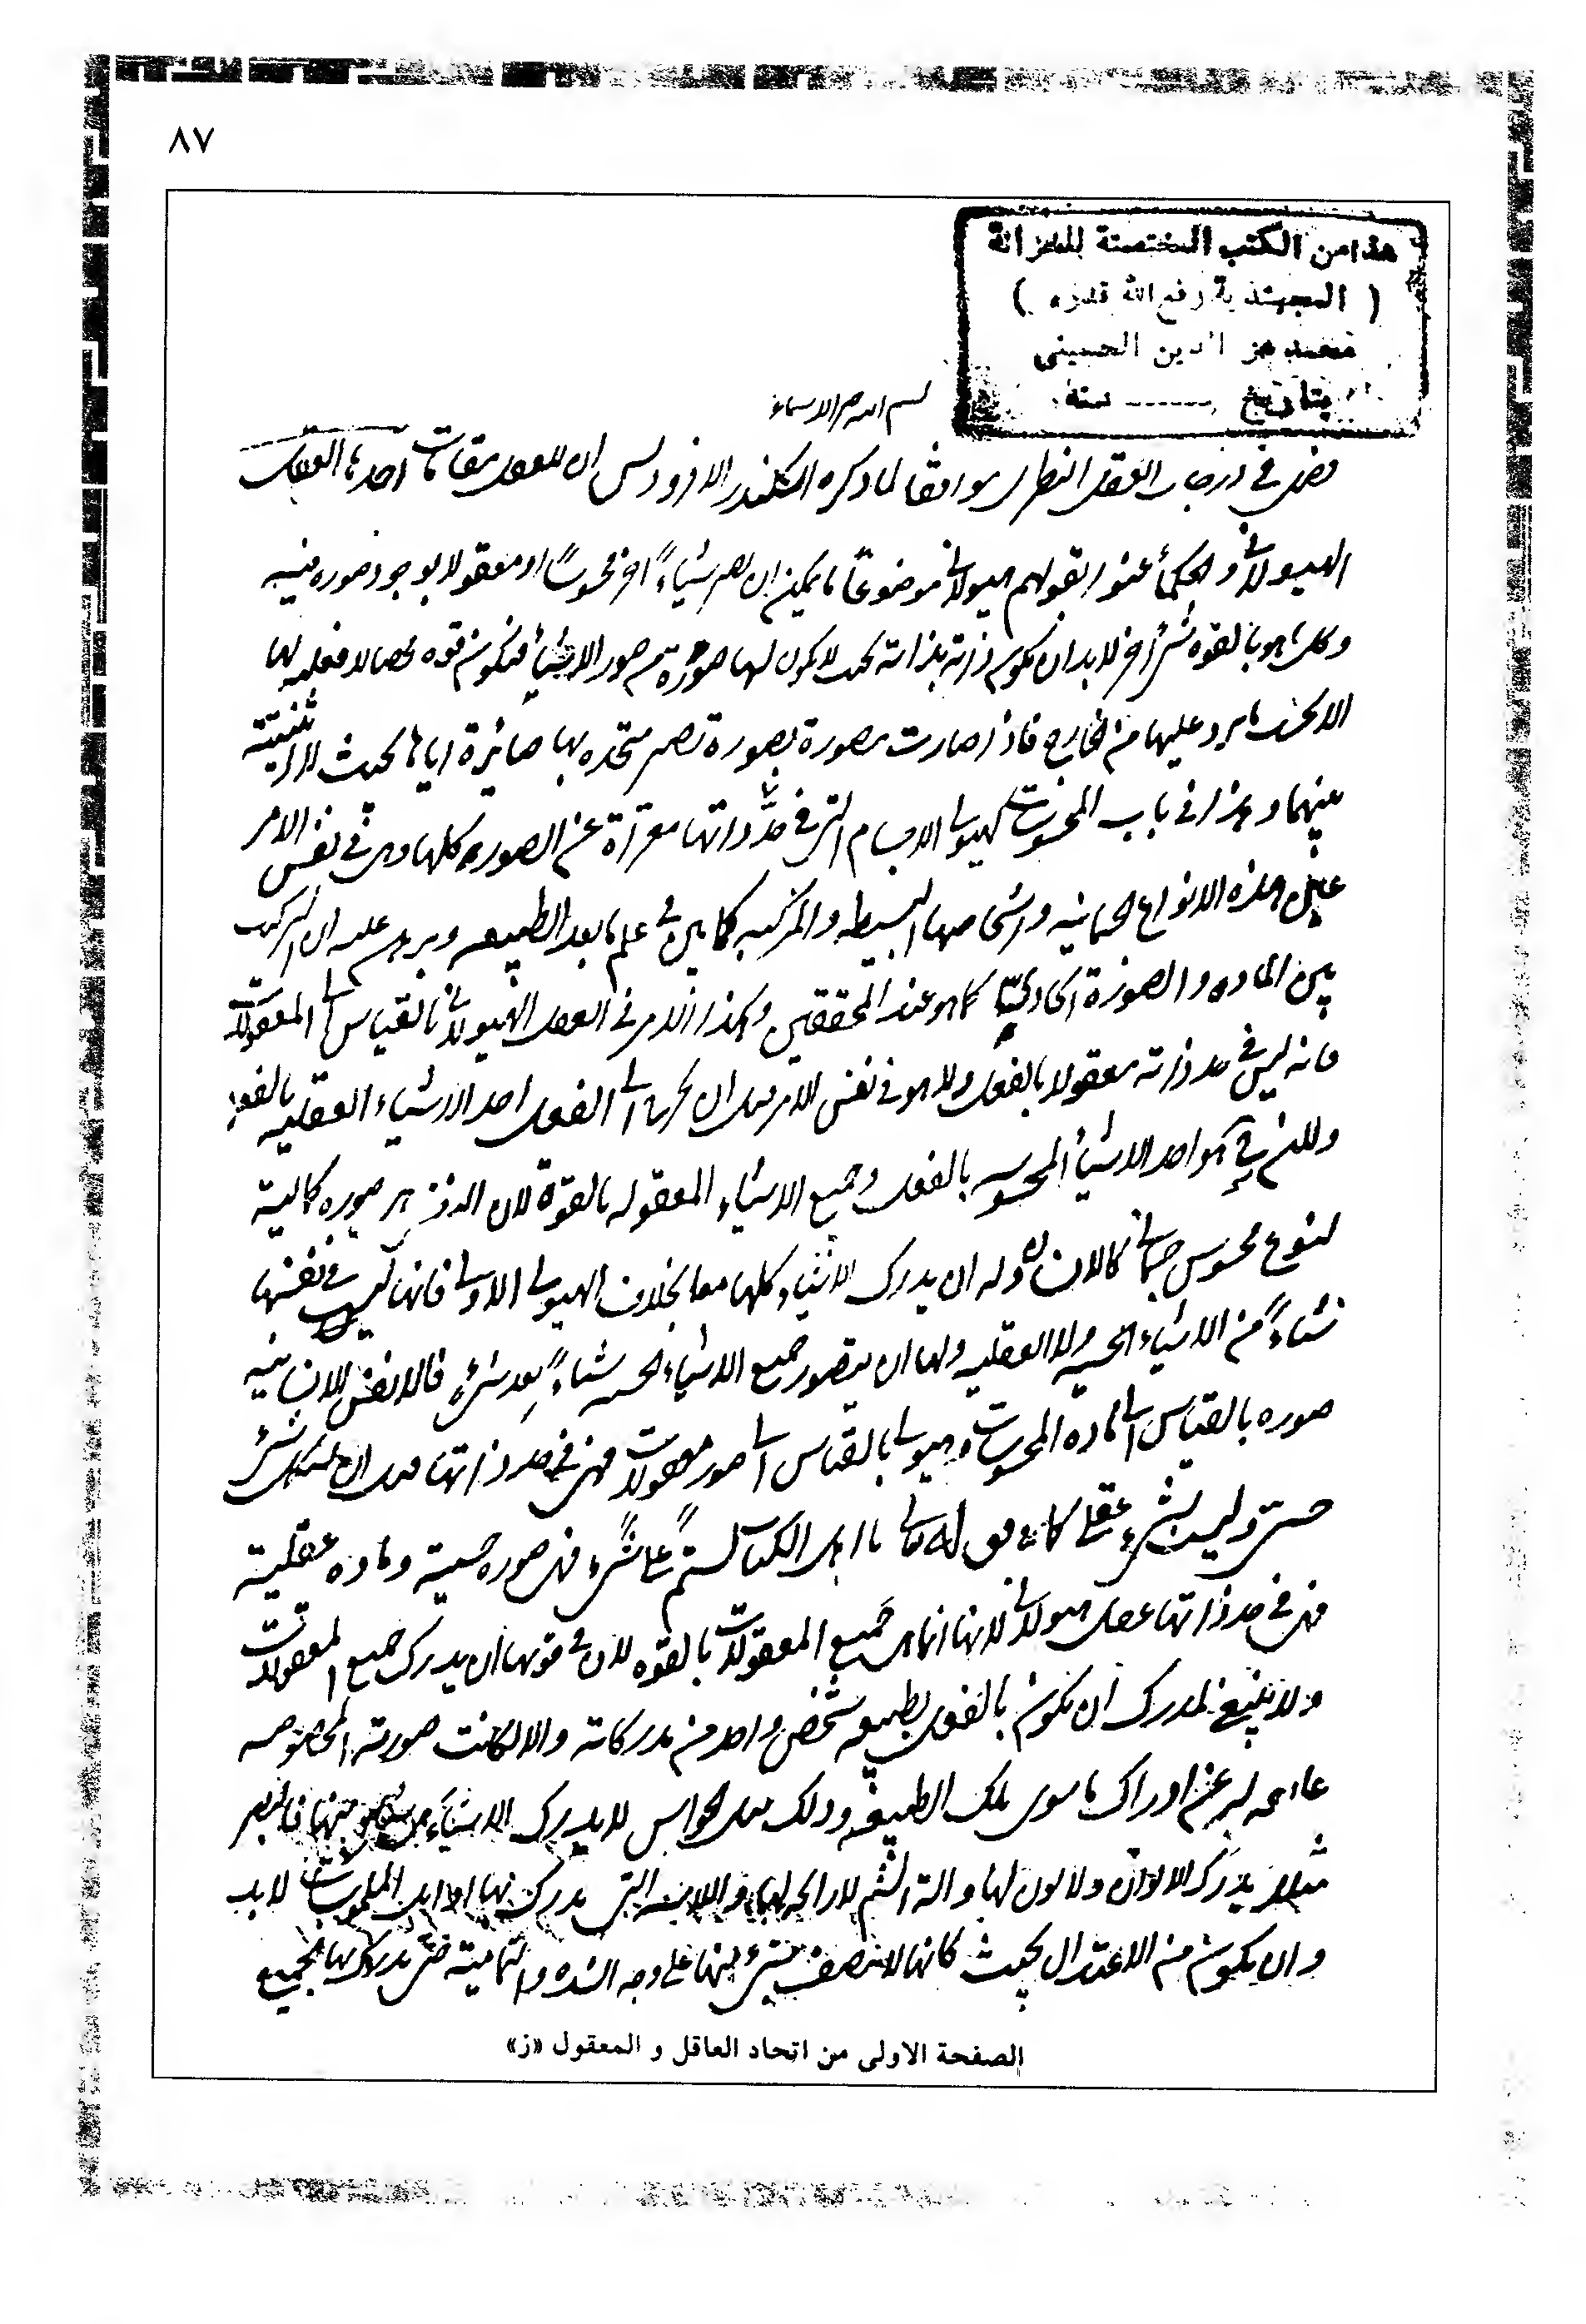 ٨٧
هذا من الكتب المختصة للخزانة
( رفع الله قدره )
محمد عز الدين الحسيني
بتاريخ ------ سنة
بسم الله خير الاسماء
فصل في درجات العقل النظرى موافقا لما ذكره اسكندر الافرودسى ان للعقل مقامات احدها العقل
الهيولانى و الحكماء عنوا بقولهم هيولانى موضوعا ما يمكن ان يصير شيئاً اخر محسوساً او معقولا بوجود صوره فيه
و كل ما هو بالقوه شىء اخر لابد ان يكون ذاته بذاته بحيث لا يكون لها صورة من صور الاشياء فيكون قوه لا فعليه لها
الا بحسب ما يرد عليها من الخارج فاذا صارت مصورة بصورة تصير متحده بها صائرة اياها بحيث لا اثنينية
بينهما و هذا فى باب المحسوسات كهيولى الاجسام التى فى حد ذاتها معراة عن الصور كلها وهى فى نفس الامر
عين هذه الانواع الجسمانيه و اشخاصها البسيطه و المركبه كما بين فى علم ما بعد الطبيعه و برهن عليه ان التركيب
بين الماده و الصورة اتحادى كما هو عند المحققين و هكذا الامر فى العقل الهيولانى بالقياس الى المعقولات
فانه ليس فى حد ذاته معقولا بالفعل ولا هو فى نفس الامر قبل ان يخرج الى الفعل احد الاشياء العقليه بالفعل
ولكن هو احد الاشياء المحسوسه بالفعل و جميع الاشياء المعقوله بالقوة لان صوره كمالية
لنوع محسوس جسمانى كالانسان و له ان يدرك الاشياء كلها معا بخلاف الهيولى الاولى فانها ليس فى نفسها
شيئاً من الاشياء الحسيه ولا العقليه و لها ان يتصور جميع الاشياء الحسيه شيئاً بعد شىء فالانفس الانسانيه
صوره بالقياس الى ماده المحسوسات و هيولى بالقياس الى صور معقولات فهى فى حد ذاتها شىء
حسى و ليس بشىء عقلى كما فى قوله تعالى يا اهل الكتاب لستم على شىء فهى صوره حسية و ماده عقلية
فهى فى حد ذاتها عقل هيولانى لانها انما هى جميع المعقولات بالقوه لان فى قوتها ان يدرك جميع المعقولات
ولا ينبغى لمدرك ان يكون بالفعل بطبيعه شخص واحد من مدركاته والا لكانت صورته المخصوصه
عن ادراك ما سوى تلك الطبيعه و ذلك مثل الحواس لا يدرك الاشياء منها فالبصر
مثلا يدرك الالوان ولا لون لها و الة الشم لا رائحه لها و اللامسه التى يدرك بها الملموسات لابد
و ان يكون من الاعتدال بحيث كانها لا تتصف بشىء منها على وجه الشده و التمامية حتى يدرك بها الجميع
الصفحة الاولى من اتحاد العاقل و المعقول «ز»